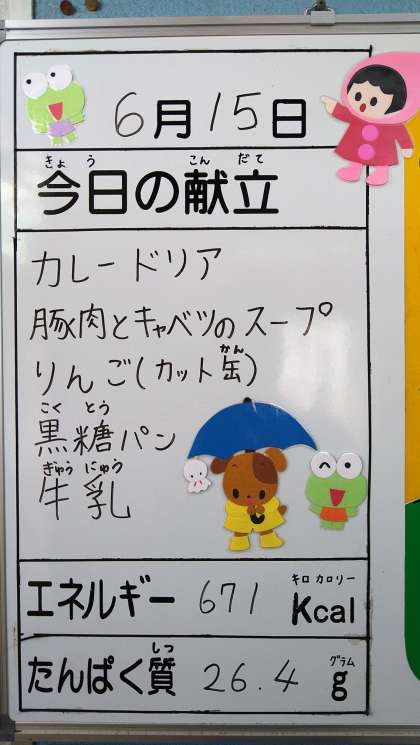 6月15日
きょう こんだて
今日の献立
カレードリア
豚肉とキャベツのスープ
かん
りんご(カット缶)
こく とう
黒糖パン
ぎゅう にゅう
牛乳
キロ カロリー
エネルギー 671 Kcal
しつ グラム
たんぱく質 26.4 g